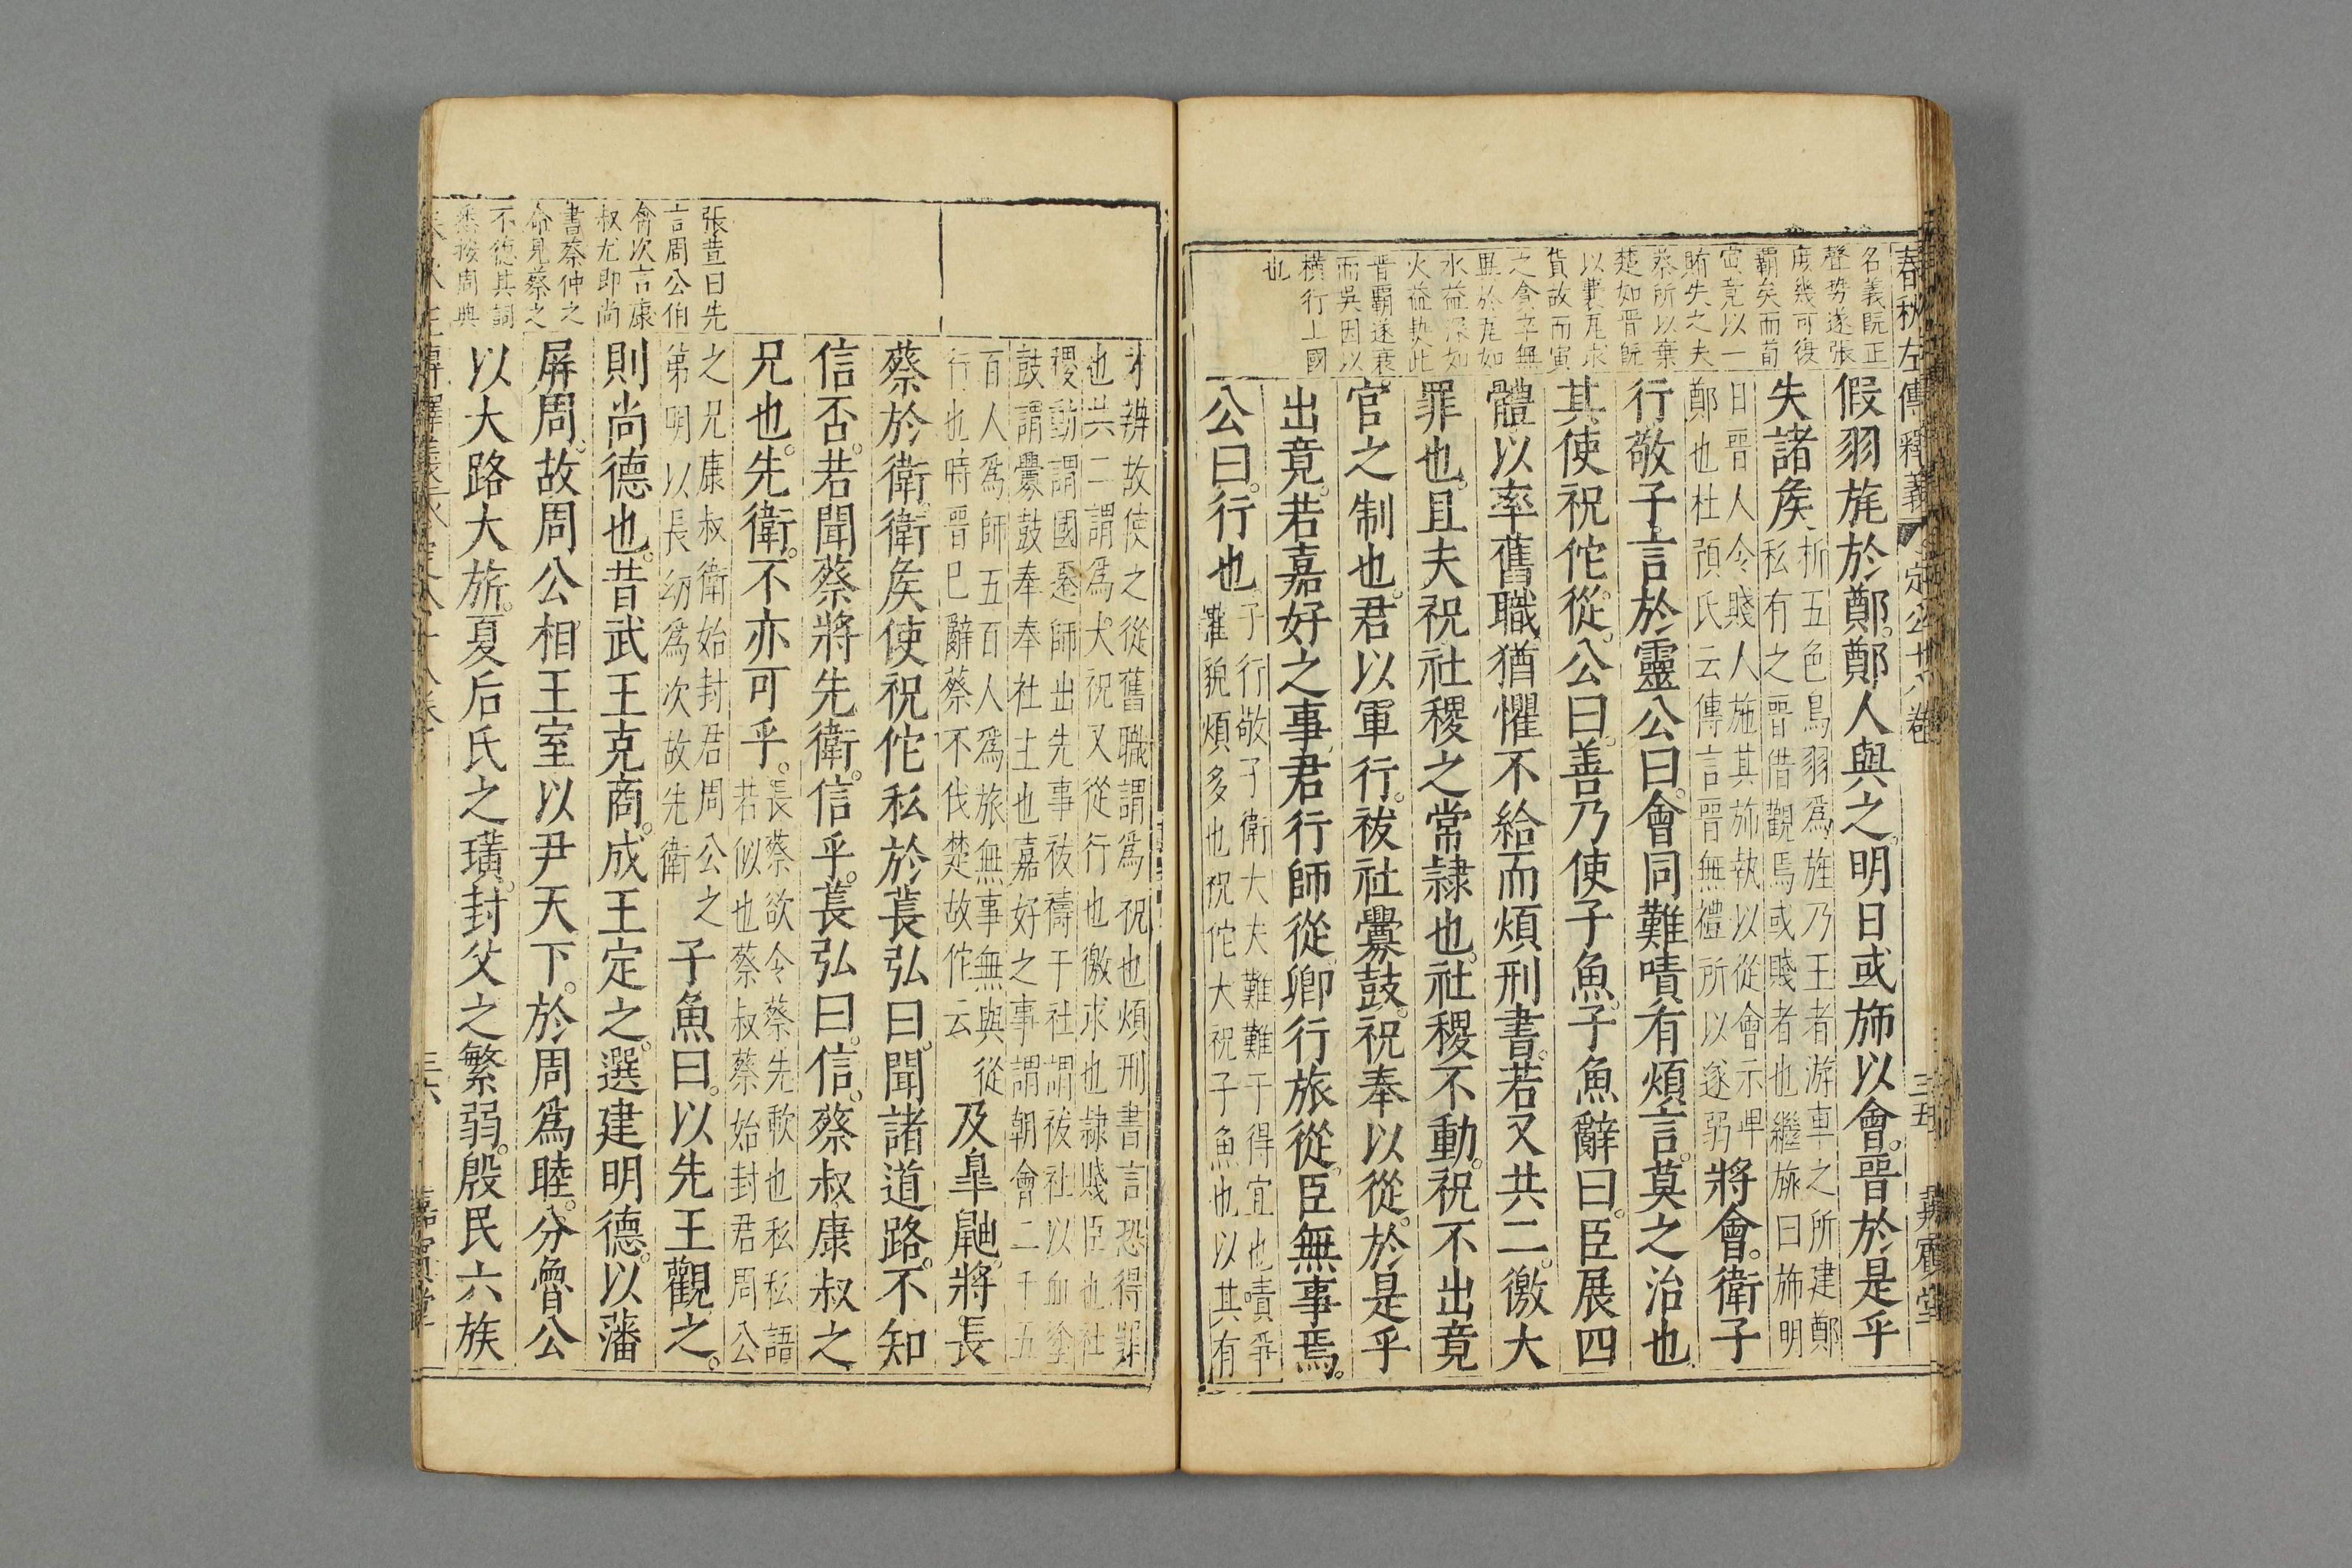 春秋左傳釋義 定公十八卷 三五 嘉賓堂
名義旣正
聲勢遂張
庶幾可復
覇矣而荀
寅竟以一
賄失之夫
蔡所以棄
楚如晋旣
以裘瓦求
貨故而寅
之貪卒無
異於瓦如
水益深如
火益熱此
晋覇遂衰
而吳因以
橫行上國
也
假羽旄於鄭鄭人與之明日或斾以會晋於是乎
失諸矦
析五色鳥羽爲旌乃王者游車之所建鄭
私有之晋借觀焉或賤者也繼旐曰斾明
日晋人令賤人施其斾執以從會示卑
鄭也杜預氏云傳言晋無禮所以遂弱
將會衛子
行敬子言於靈公曰會同難嘖有煩言莫之治也
其使祝佗從公曰善乃使子魚子魚辭曰臣展四
體以率舊職猶懼不給而煩刑書若又共二徼大
罪也且夫祝社稷之常隷也社稷不動祝不出竟
官之制也君以軍行祓社釁鼓祝奉以從於是乎
出竟若嘉好之事君行師從卿行旅從臣無事焉
公曰行也
子行敬子衛大夫難難于得宜也嘖爭
讙貌煩多也祝佗大祝子魚也以其有
才辨故使之從舊職謂爲祝也煩刑書言恐得罪
也共二謂爲大祝又從行也徼求也隷賤臣也社
稷動謂國遷師出先事祓禱于社謂祓社以血塗
鼓謂釁鼓奉奉社主也嘉好之事謂朝會二千五
百人爲師五百人爲旅無事無與從
行也時晋巳辭蔡不伐楚故佗云
及臯鼬將長
蔡於衛衛矦使祝佗私於萇弘曰聞諸道路不知
信否若聞蔡將先衛信乎萇弘曰信蔡叔康叔之
兄也先衛不亦可乎
長蔡欲令蔡先歃也私私語
若似也蔡叔蔡始封君周公
之兄康叔衛始封君周公之
弟明以長幼爲次故先衛
子魚曰以先王觀之
則尚德也昔武王克商成王定之選建明德以藩
屏周故周公相王室以尹天下於周爲睦分魯公
以大路大旂夏后氏之璜封父之繁弱殷民六族
張萱曰先
言周公伯
禽次言康
叔尤即尚
書蔡仲之
命見蔡之
不德其詞
悉按周典
三六
嘉賓堂